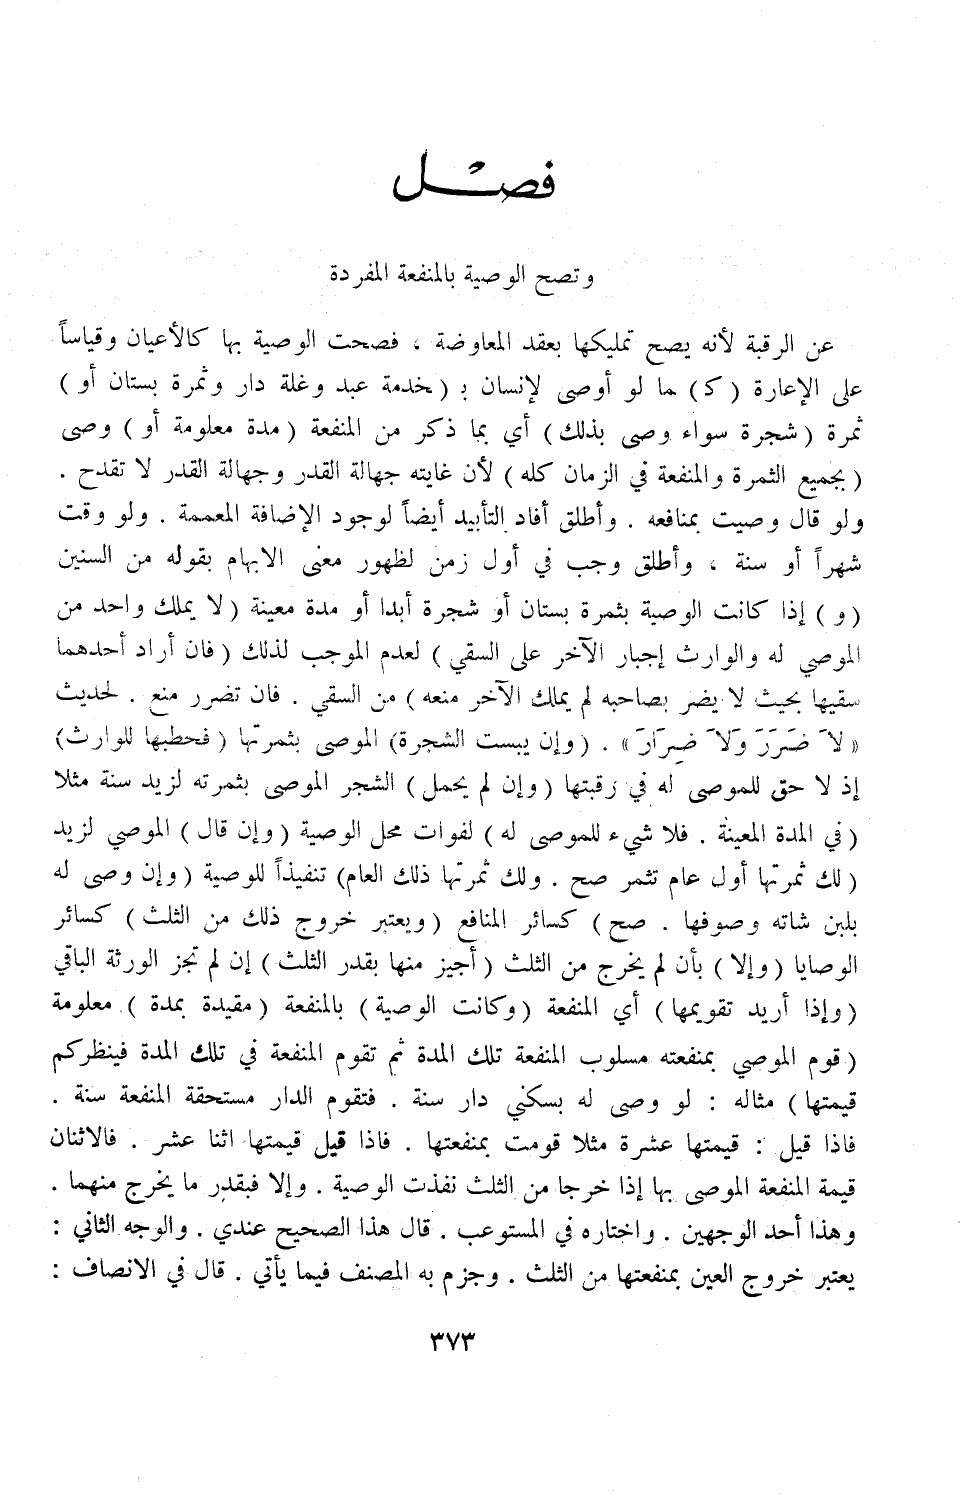 فصل
وتصح الوصية بالمنفعة المفردة
عن الرقبة لأنه يصح تمليكها بعقد المعاوضة ، فصحت الوصية بها كالأعيان وقياساً
على الإعارة ( كـ ) ما لو أوصى لإنسان بـ ( خدمة عبد وغلة دار وثمرة بستان أو )
ثمرة ( شجرة سواء وصى بذلك ) أي بما ذكر من المنفعة ( مدة معلومة أو ) وصى
( بجميع الثمرة والمنفعة في الزمان كله ) لأن غايته جهالة القدر وجهالة القدر لا تقدح .
ولو قال وصيت بمنافعه . وأطلق أفاد التأبيد أيضاً لوجود الإضافة المعممة . ولو وقت
شهراً أو سنة ، وأطلق وجب في أول زمن لظهور معنى الابهام بقوله من السنين
( و ) إذا كانت الوصية بثمرة بستان أو شجرة أبدا أو مدة معينة ( لا يملك واحد من
الموصي له والوارث إجبار الآخر على السقي ) لعدم الموجب لذلك ( فان أراد أحدهما
سقيها بحيث لا يضر بصاحبه لم يملك الآخر منعه ) من السقي . فان تضرر منع . لحديث
« لاَ ضَرَرَ وَلاَ ضِرَارَ » . ( وإن يبست الشجرة ) الموصى بثمرتها ( فحطبها للوارث )
إذ لا حق للموصى له في رقبتها ( وإن لم يحمل ) الشجر الموصى بثمرته لزيد سنة مثلا
( في المدة المعينة . فلا شيء للموصى له ) لفوات محل الوصية ( وإن قال ) الموصي لزيد
( لك ثمرتها أول عام تثمر صح . ولك ثمرتها ذلك العام ) تنفيذاً للوصية ( وإن وصى له
بلبن شاته وصوفها . صح ) كسائر المنافع ( ويعتبر خروج ذلك من الثلث ) كسائر
الوصايا ( وإلا ) بأن لم يخرج من الثلث ( أجيز منها بقدر الثلث ) إن لم تجز الورثة الباقي
( وإذا أريد تقويمها ) أي المنفعة ( وكانت الوصية ) بالمنفعة ( مقيدة بمدة ) معلومة
( قوم الموصي بمنفعته مسلوب المنفعة تلك المدة ثم تقوم المنفعة في تلك المدة فينظركم
قيمتها ) مثاله : لو وصى له بسكني دار سنة . فتقوم الدار مستحقة المنفعة سنة .
فاذا قيل : قيمتها عشرة مثلا قومت بمنفعتها . فاذا قيل قيمتها اثنا عشر . فالاثنان
قيمة المنفعة الموصى بها إذا خرجا من الثلث نفذت الوصية . وإلا فبقدر ما يخرج منهما .
وهذا أحد الوجهين . واختاره في المستوعب . قال هذا الصحيح عندي . والوجه الثاني :
يعتبر خروج العين بمنفعتها من الثلث . وجزم به المصنف فيما يأتي . قال في الانصاف :
٣٧٣